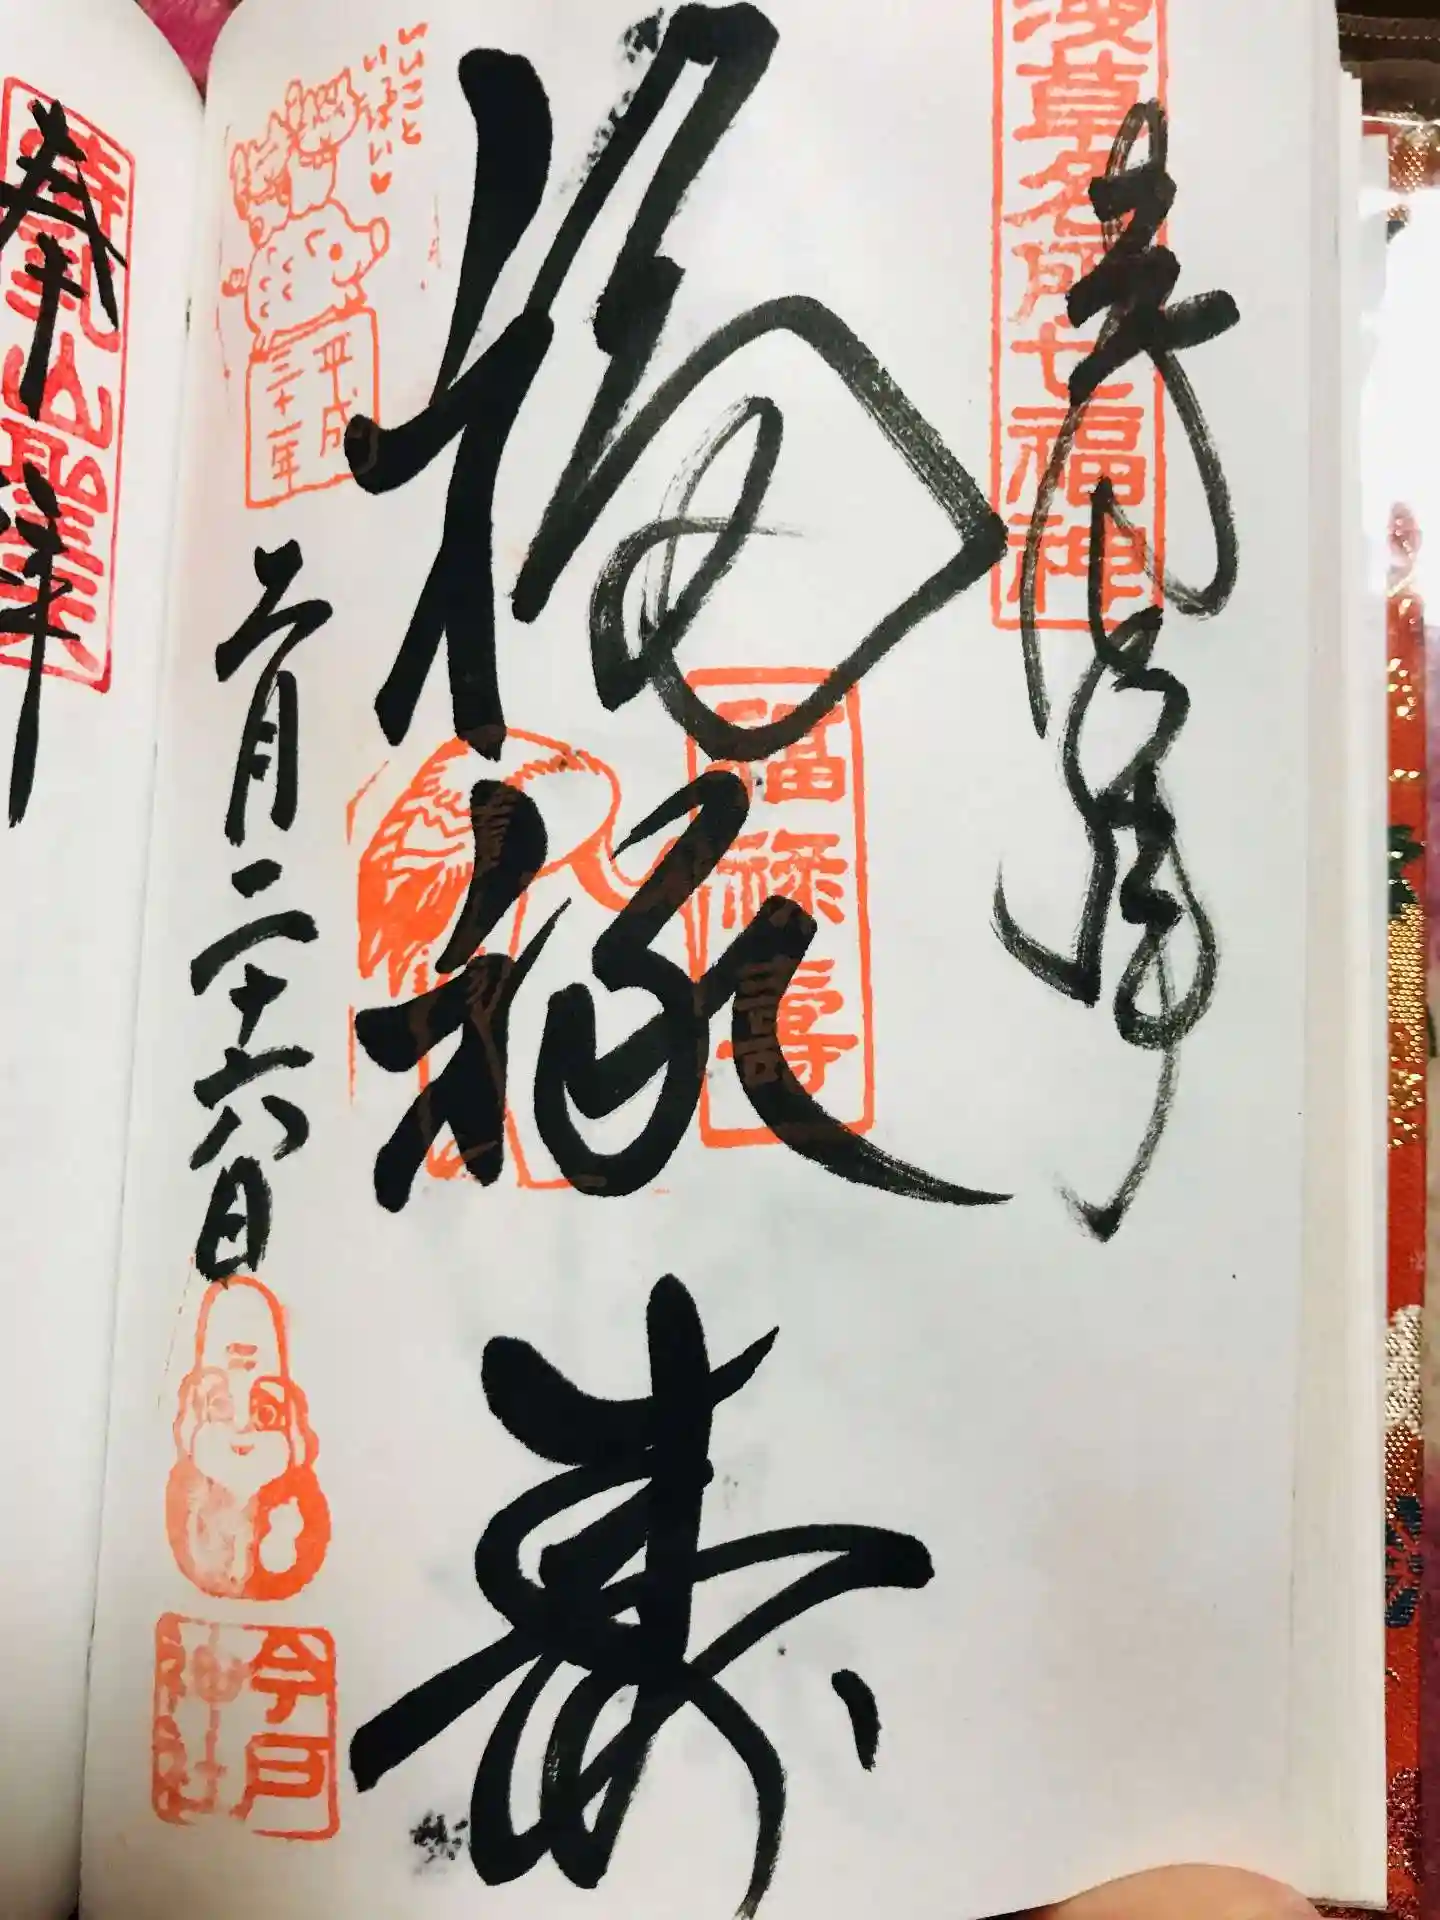 浅草名所七福神
福禄寿
福禄壽
いいこと
いっぱい♥
平成
三十一年
三月二十六日
今戸
神社
奉拝
待乳山聖天